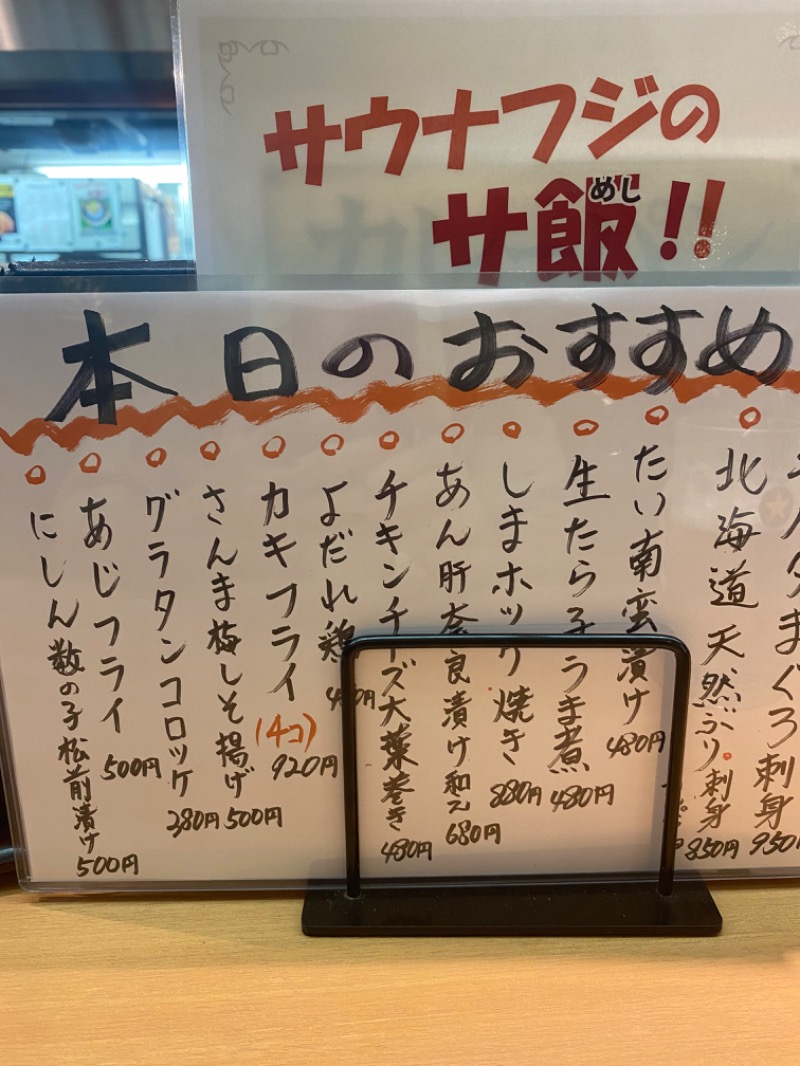 サウナフジの
サ飯!!
めし
本日のおすすめ
まぐろ刺身 950
北海道天然ぶり刺身 850円
たい南蛮漬け 480円
生たら子うま煮 480円
しまホッケ焼き 880円
あん肝奈良漬け和え 680円
チキンチーズ大葉巻き 480円
よだれ鶏 480円
カキフライ(4コ) 920円
さんま梅しそ揚げ 500円
グラタンコロッケ 380円
あじフライ 500円
にしん数の子松前漬け 500円